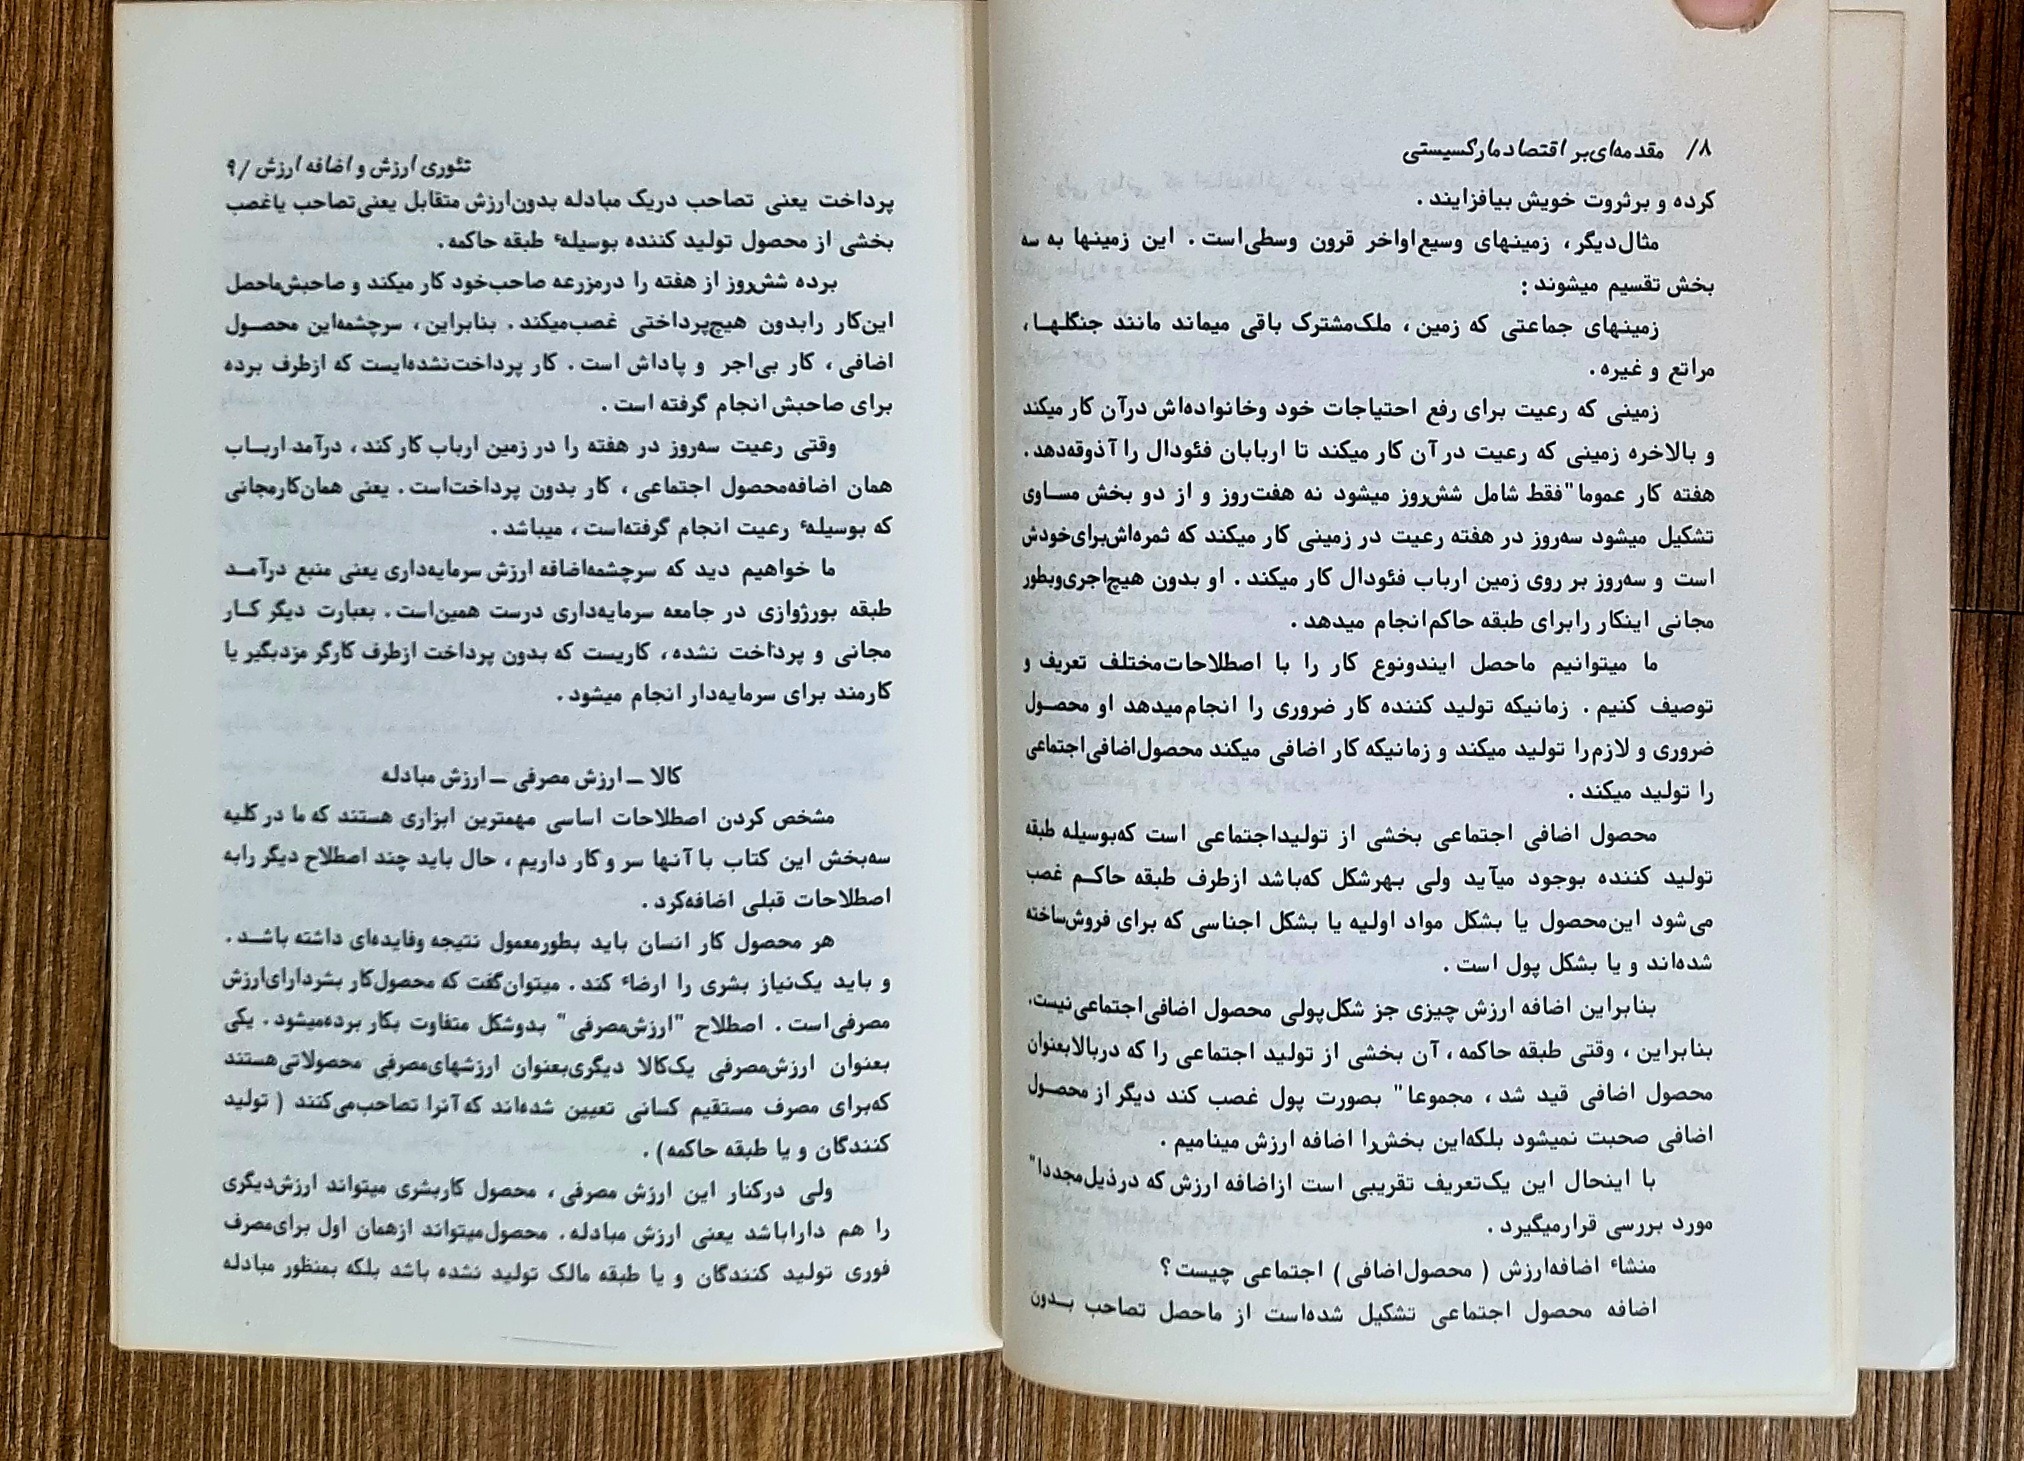 ۸/ مقدمه‌ای‌بر اقتصاد مارکسیستی
کرده و برثروت خویش بیافزایند .
مثال‌دیگر ، زمینهای وسیع‌اواخر قرون وسطی‌است . این زمینها به سه
بخش تقسیم میشوند :
زمینهای جماعتی که زمین ، ملک‌مشترک باقی میماند مانند جنگلهـا ،
مراتع و غیره .
زمینی که رعیت برای رفع احتیاجات خود وخانواده‌اش درآن کار میکند
و بالاخره زمینی که رعیت در آن کار میکند تا اربابان فئودال را آذوقه‌دهد .
هفته کار عموما" فقط شامل شش‌روز میشود نه هفت‌روز و از دو بخش مسـاوی
تشکیل میشود سه‌روز در هفته رعیت در زمینی کار میکند که ثمره‌اش‌برای‌خودش
است و سه‌روز بر روی زمین ارباب فئودال کار میکند . او بدون هیچ‌اجری‌وبطور
مجانی اینکار رابرای طبقه حاکم‌انجام میدهد .
ما میتوانیم ماحصل ایندونوع کار را با اصطلاحات‌مختلف تعریف و
توصیف کنیم . زمانیکه تولید کننده کار ضروری را انجام‌میدهد او محصـول
ضروری و لازم‌را تولید میکند و زمانیکه کار اضافی میکند محصول‌اضافی‌اجتماعی
را تولید میکند .
محصول اضافی اجتماعی بخشی از تولیداجتماعی است که‌بوسیله طبقه
تولید کننده بوجود میآید ولی بهرشکل که‌باشد ازطرف طبقه حاکـم غصب
می‌شود این‌محصول یا بشکل مواد اولیه یا بشکل اجناسی که برای فروش‌ساخته
شده‌اند و یا بشکل پول است .
بنابراین اضافه ارزش چیزی جز شکل‌پولی محصول اضافی‌اجتماعی‌نیست.
بنابراین ، وقتی طبقه حاکمه ، آن بخشی از تولید اجتماعی را که دربالابعنوان
محصول اضافی قید شد ، مجموعا" بصورت پول غصب کند دیگر از محصـول
اضافی صحبت نمیشود بلکه‌این بخش‌را اضافه ارزش مینامیم .
با اینحال این یک‌تعریف تقریبی است ازاضافه ارزش که درذیل‌مجددا"
مورد بررسی قرارمیگیرد .
منشاء اضافه‌ارزش ( محصول‌اضافی ) اجتماعی چیست ؟
اضافه محصول اجتماعی تشکیل شده‌است از ماحصل تصاحب بـدون
تئوری ارزش و اضافه ارزش /۹
پرداخت یعنی تصاحب دریک مبادله بدون‌ارزش متقابل یعنی‌تصاحب یاغصب
بخشی از محصول تولید کننده بوسیلهٔ طبقه حاکمه .
برده شش‌روز از هفته را درمزرعه صاحب‌خود کار میکند و صاحبش‌ماحصل
این‌کار رابدون هیچ‌پرداختی غصب‌میکند . بنابراین ، سرچشمه‌این محصـول
اضافی ، کار بی‌اجر و پاداش است . کار پرداخت‌نشده‌ایست که ازطرف برده
برای صاحبش انجام گرفته است .
وقتی رعیت سه‌روز در هفته را در زمین ارباب کار کند ، درآمد اربـاب
همان اضافه‌محصول اجتماعی ، کار بدون پرداخت‌است . یعنی همان‌کارمجانی
که بوسیلهٔ رعیت انجام گرفته‌است ، میباشد .
ما خواهیم دید که سرچشمه‌اضافه ارزش سرمایه‌داری یعنی منبع درآمـد
طبقه بورژوازی در جامعه سرمایه‌داری درست همین‌است . بعبارت دیگر کـار
مجانی و پرداخت نشده ، کاریست که بدون پرداخت ازطرف کارگر مزدبگیر یا
کارمند برای سرمایه‌دار انجام میشود .
کالا ــ ارزش مصرفی ــ ارزش مبادله
مشخص کردن اصطلاحات اساسی مهمترین ابزاری هستند که ما در کلیه
سه‌بخش این کتاب با آنها سر و کار داریم ، حال باید چند اصطلاح دیگر رابه
اصطلاحات قبلی اضافه‌کرد .
هر محصول کار انسان باید بطورمعمول نتیجه وفایده‌ای داشته باشـد .
و باید یک‌نیاز بشری را ارضاء کند . میتوان‌گفت که محصول‌کار بشردارای‌ارزش
مصرفی‌است . اصطلاح "ارزش‌مصرفی" بدوشکل متفاوت بکار برده‌میشود . یکی
بعنوان ارزش‌مصرفی یک‌کالا دیگری‌بعنوان ارزشهای‌مصرفی محصولاتی‌هستند
که‌برای مصرف مستقیم کسانی تعیین شده‌اند که آنرا تصاحب‌می‌کنند ( تولید
کنندگان و یا طبقه حاکمه ) .
ولی درکنار این ارزش مصرفی ، محصول کاربشری میتواند ارزش‌دیگری
را هم داراباشد یعنی ارزش مبادله . محصول‌میتواند ازهمان اول برای‌مصرف
فوری تولید کنندگان و یا طبقه مالک تولید نشده باشد بلکه بمنظور مبادله